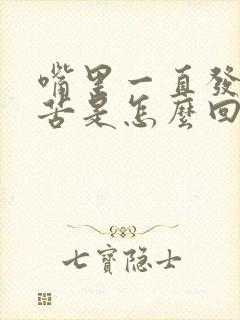 嘴里一直發
苦是怎麼回
七寶隐士